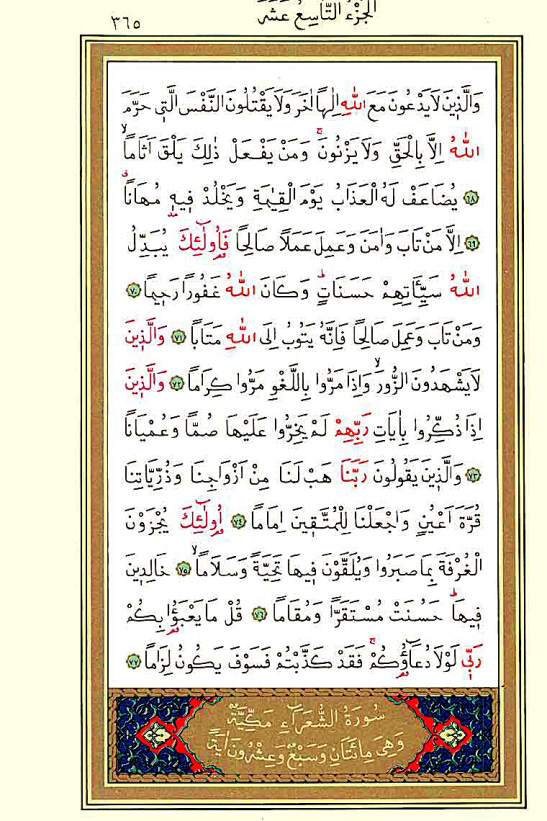 الجزء التاسع عشر
٣٦٥
وَالَّذِينَ لَا يَدْعُونَ مَعَ اللّٰهِ اِلٰهًا اٰخَرَ وَلَا يَقْتُلُونَ النَّفْسَ الَّتِي حَرَّمَ
اللّٰهُ اِلَّا بِالْحَقِّ وَلَا يَزْنُونَ وَمَنْ يَفْعَلْ ذٰلِكَ يَلْقَ اَثَامًا
﴿٦٨﴾ يُضَاعَفْ لَهُ الْعَذَابُ يَوْمَ الْقِيٰمَةِ وَيَخْلُدْ فِيهِ مُهَانًا
﴿٦٩﴾ اِلَّا مَنْ تَابَ وَاٰمَنَ وَعَمِلَ عَمَلًا صَالِحًا فَاُولٰٓئِكَ يُبَدِّلُ
اللّٰهُ سَيِّـَٔاتِهِمْ حَسَنَاتٍ وَكَانَ اللّٰهُ غَفُورًا رَحِيمًا ﴿٧٠﴾
وَمَنْ تَابَ وَعَمِلَ صَالِحًا فَاِنَّهُ يَتُوبُ اِلَى اللّٰهِ مَتَابًا ﴿٧١﴾ وَالَّذِينَ
لَا يَشْهَدُونَ الزُّورَ وَاِذَا مَرُّوا بِاللَّغْوِ مَرُّوا كِرَامًا ﴿٧٢﴾ وَالَّذِينَ
اِذَا ذُكِّرُوا بِاٰيَاتِ رَبِّهِمْ لَمْ يَخِرُّوا عَلَيْهَا صُمًّا وَعُمْيَانًا
﴿٧٣﴾ وَالَّذِينَ يَقُولُونَ رَبَّنَا هَبْ لَنَا مِنْ اَزْوَاجِنَا وَذُرِّيَّاتِنَا
قُرَّةَ اَعْيُنٍ وَاجْعَلْنَا لِلْمُتَّقِينَ اِمَامًا ﴿٧٤﴾ اُولٰٓئِكَ يُجْزَوْنَ
الْغُرْفَةَ بِمَا صَبَرُوا وَيُلَقَّوْنَ فِيهَا تَحِيَّةً وَسَلَامًا ﴿٧٥﴾ خَالِدِينَ
فِيهَا حَسُنَتْ مُسْتَقَرًّا وَمُقَامًا ﴿٧٦﴾ قُلْ مَا يَعْبَؤُا بِكُمْ
رَبِّي لَوْلَا دُعَاؤُ۬كُمْ فَقَدْ كَذَّبْتُمْ فَسَوْفَ يَكُونُ لِزَامًا ﴿٧٧﴾
سُورَةُ الشُّعَرَاءِ مَكِّيَّةٌ
وَهِيَ مِائَتَانِ وَسَبْعٌ وَعِشْرُونَ اٰيَةً